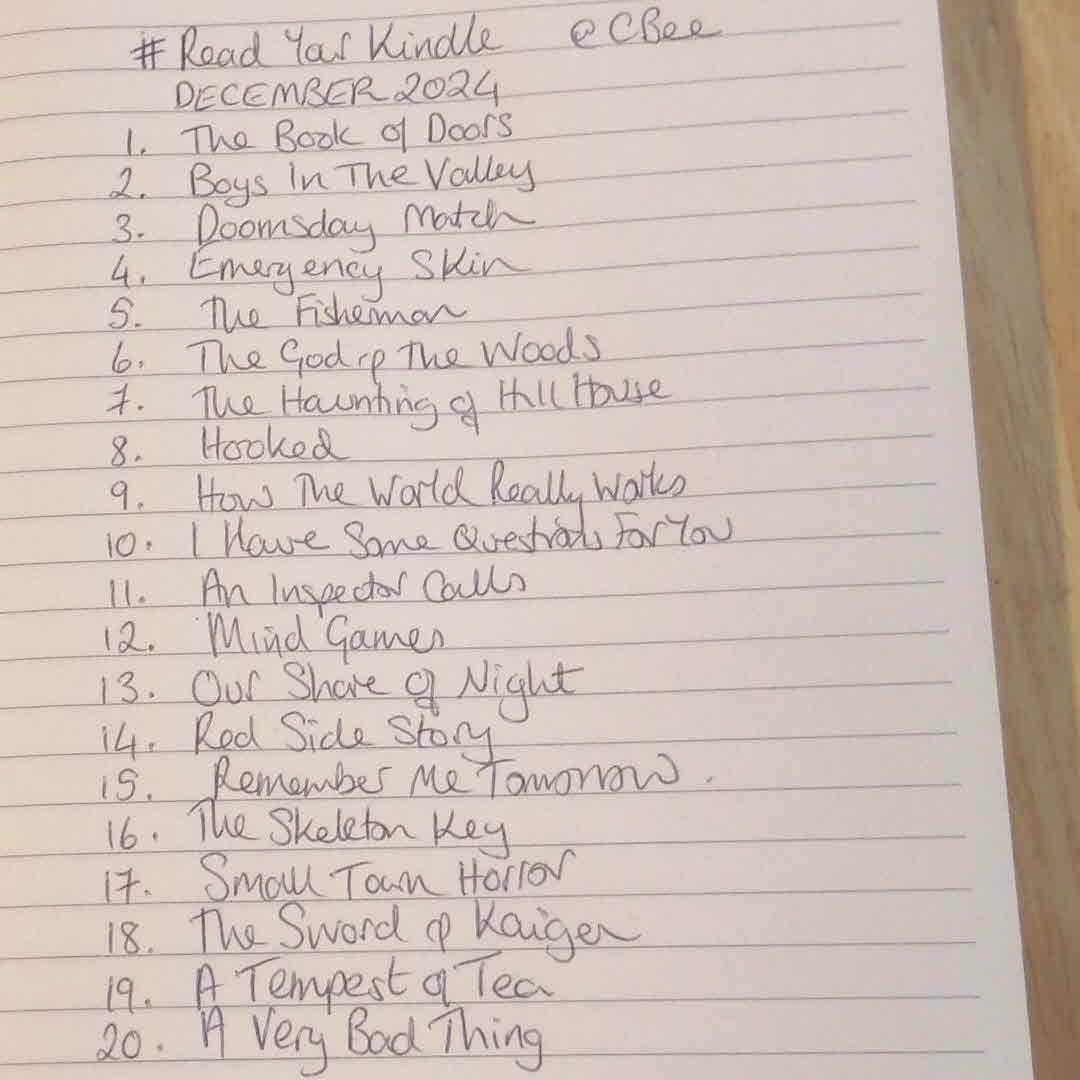 # Read Your Kindle @CBee
DECEMBER 2024
1. The Book of Doors
2. Boys In The Valley
3. Doomsday Match
4. Emergency Skin
5. The Fisherman
6. The God of The Woods
7. The Haunting of Hill House
8. Hooked
9. How The World Really Works
10. I Have Some Questions For You
11. An Inspector Calls
12. Mind Games
13. Our Share of Night
14. Red Side Story
15. Remember Me Tomorrow.
16. The Skeleton Key
17. Small Town Horror
18. The Sword of Kaigen
19. A Tempest of Tea
20. A Very Bad Thing